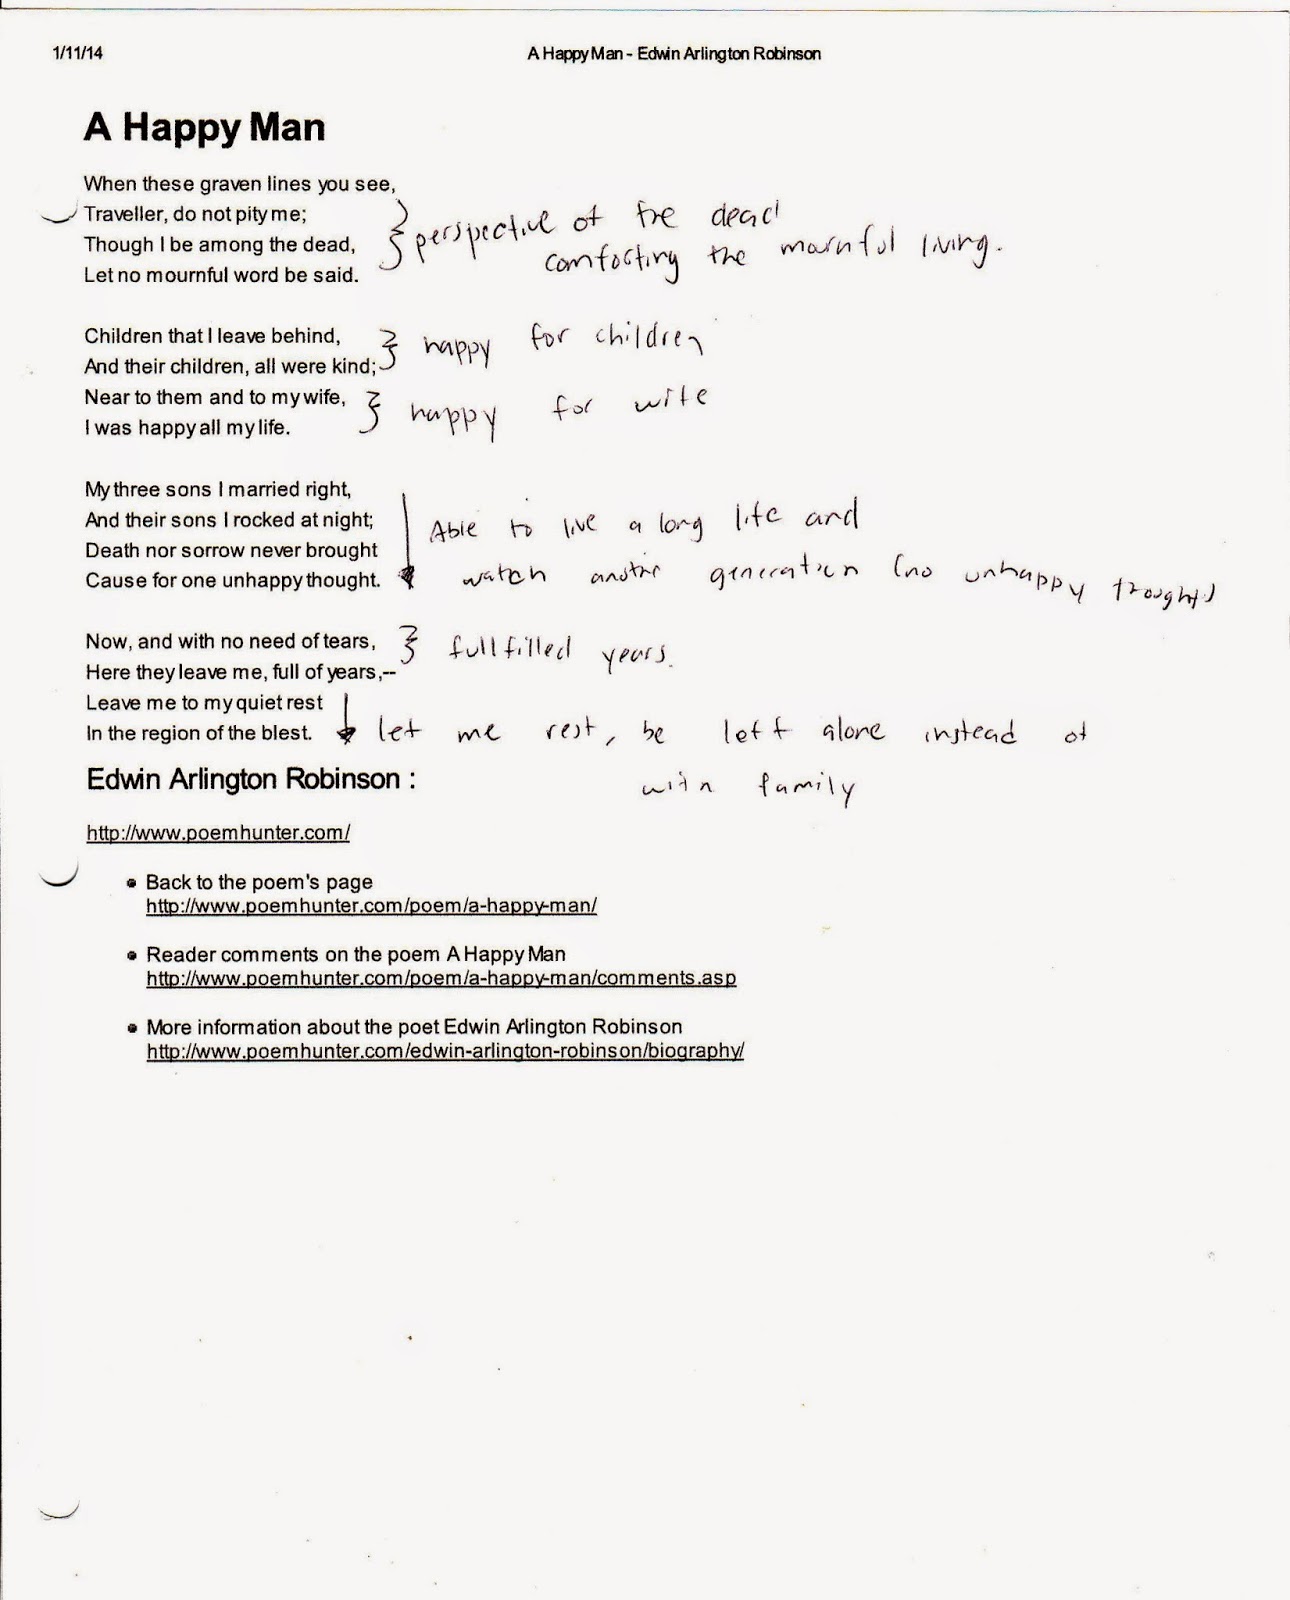 1/11/14 A Happy Man - Edwin Arlington Robinson
A Happy Man
When these graven lines you see,
Traveller, do not pity me;
Though I be among the dead,
Let no mournful word be said.
perspective of the dead
comforting the mournful living.
Children that I leave behind,
And their children, all were kind;
happy for children
Near to them and to my wife,
I was happy all my life.
happy for wife
My three sons I married right,
And their sons I rocked at night;
Death nor sorrow never brought
Cause for one unhappy thought.
Able to live a long life and
watch another generation (no unhappy thoughts)
Now, and with no need of tears,
Here they leave me, full of years,--
fullfilled years.
Leave me to my quiet rest
In the region of the blest.
let me rest, be left alone instead of
with family
Edwin Arlington Robinson :
http://www.poemhunter.com/
• Back to the poem's page
http://www.poemhunter.com/poem/a-happy-man/
• Reader comments on the poem A Happy Man
http://www.poemhunter.com/poem/a-happy-man/comments.asp
• More information about the poet Edwin Arlington Robinson
http://www.poemhunter.com/edwin-arlington-robinson/biography/